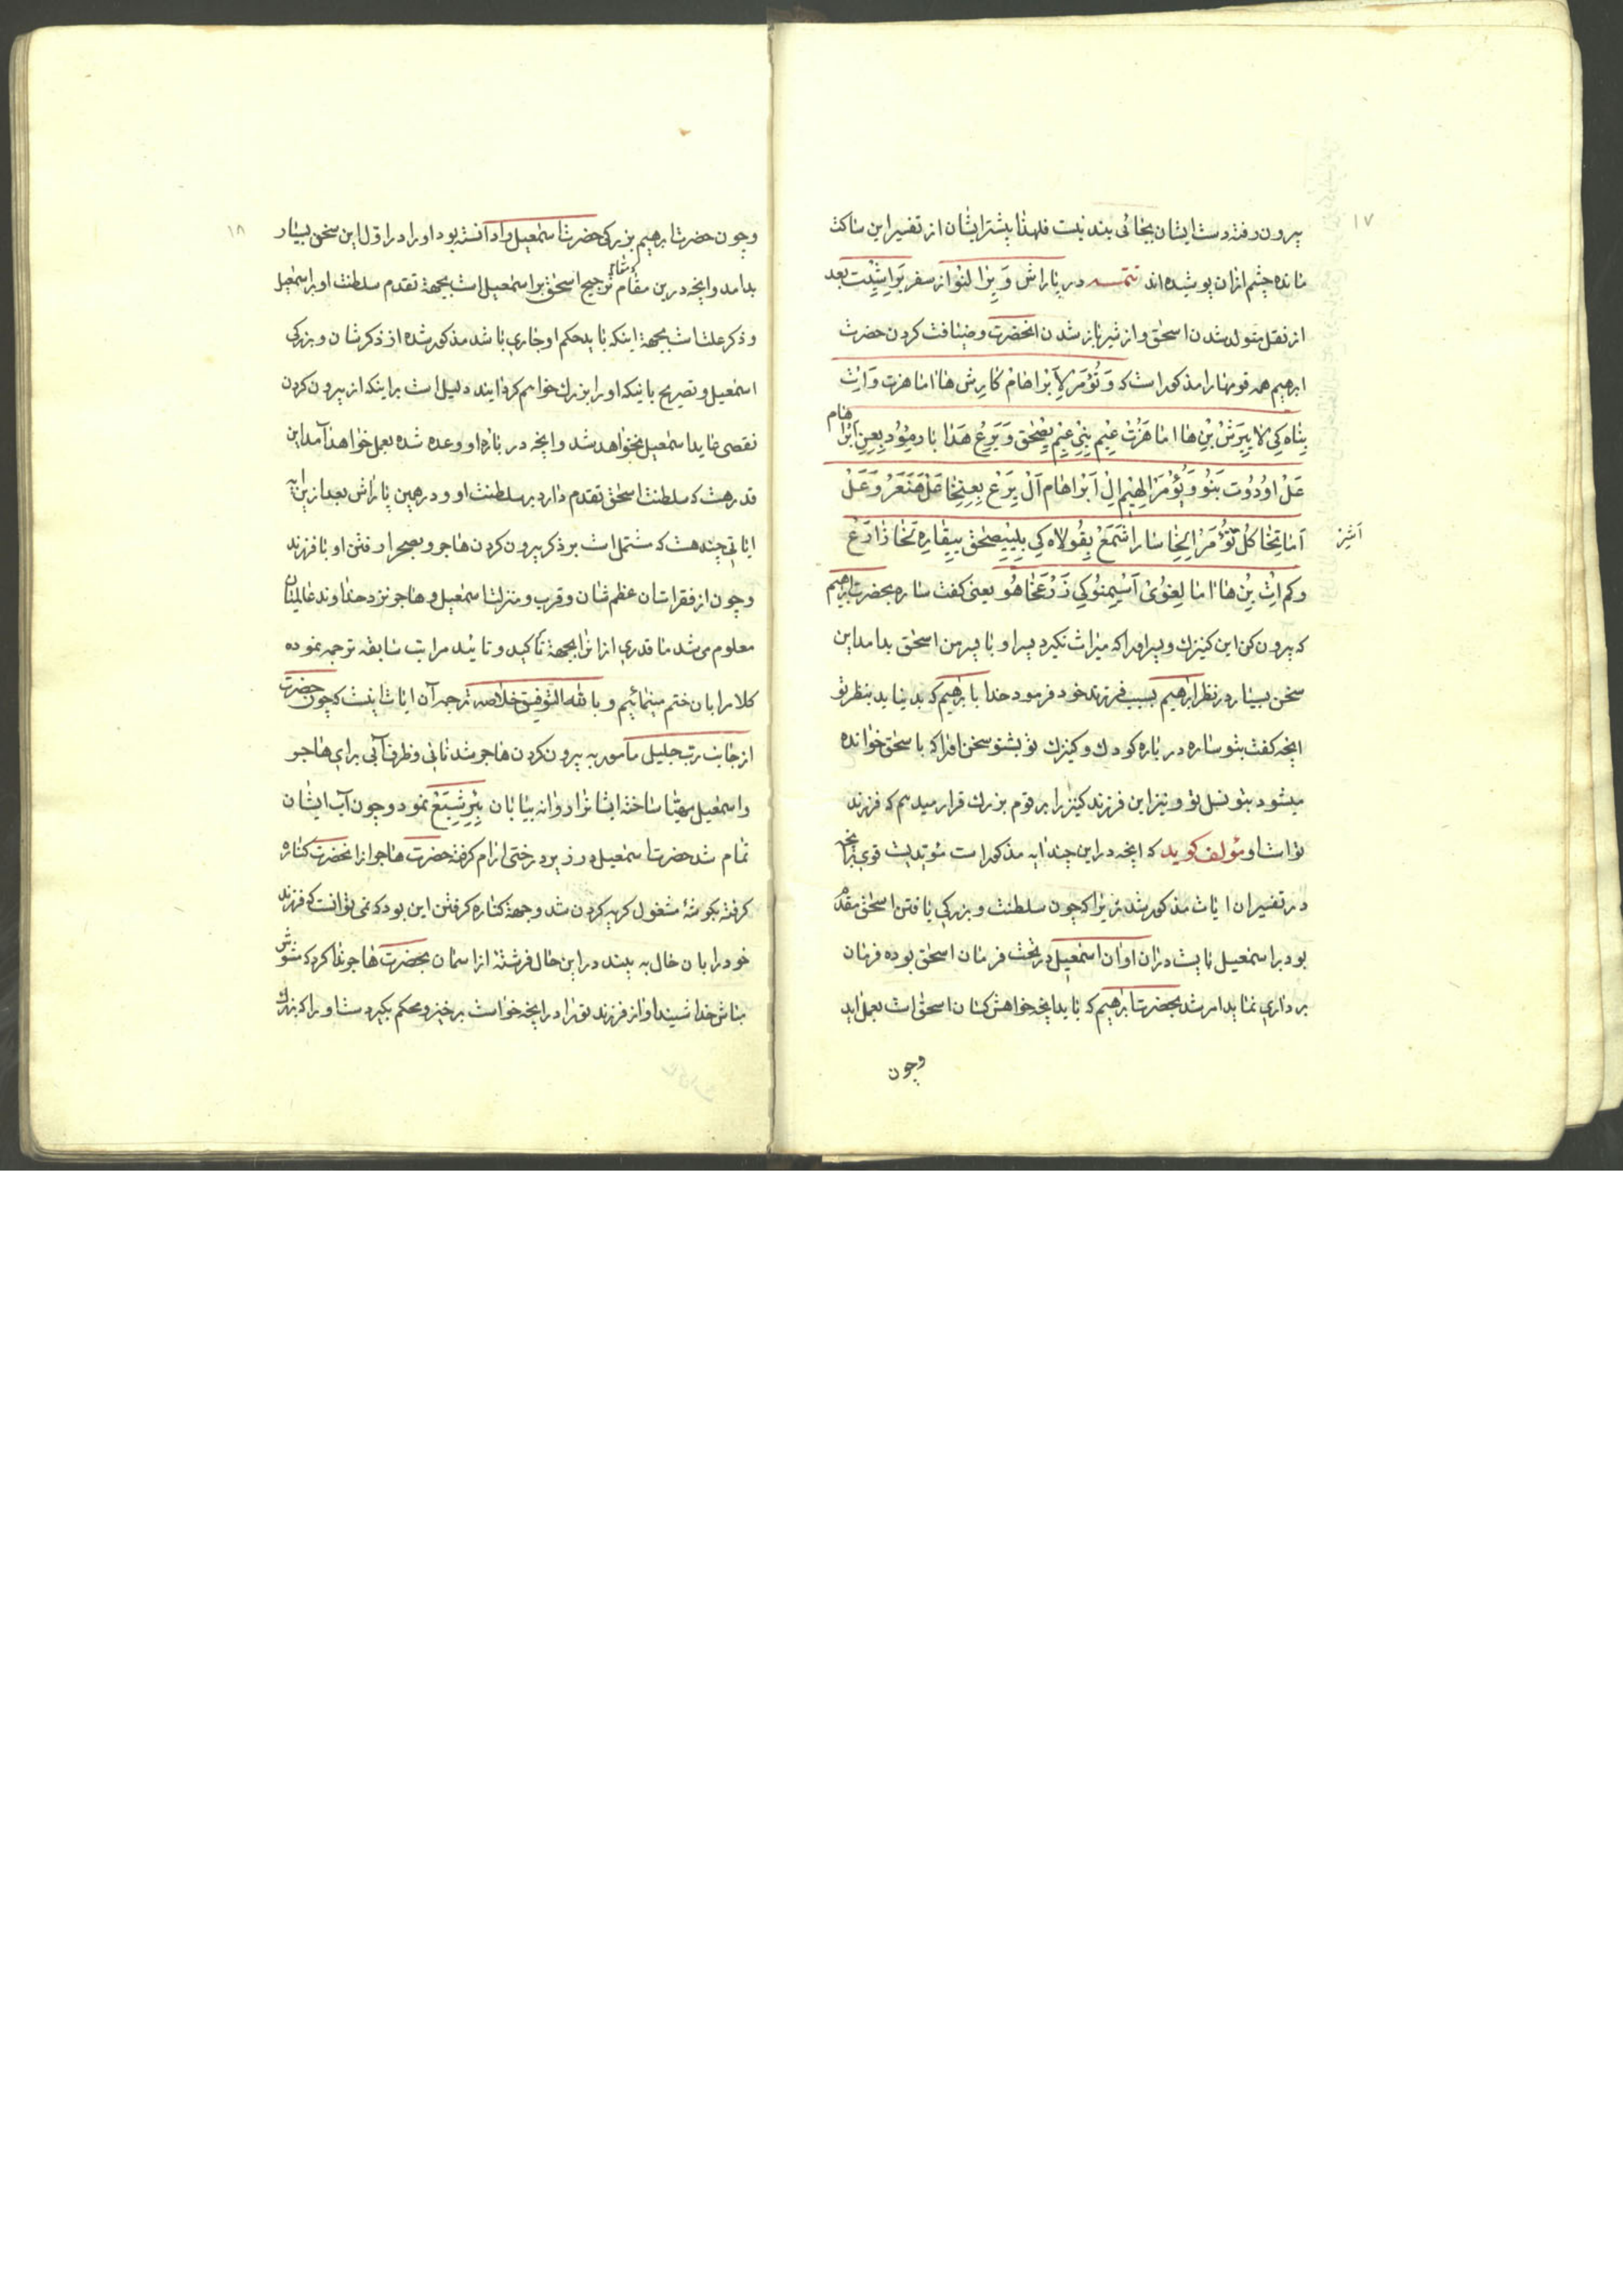 ۱۷
بیرون رفته دست ایشان بجائی بند نیست فلهذا بیشتر ایشان از تفسیر این ساکت
مانده چشم ازان پوشیده اند تتمه در پاراش وَیِرا النو از سفر بَراشِیْت بعد
از نقل متولد شدن اسحق و از شیر باز شدن انحضرت و ضیافت کردن حضرت
ابرهیم همه قومها را مذکور است که وَتُؤمَرْ لِآبْراهامْ کارِش هااما هزت وَاِثْ
بِناه کِی لا یِیرَشْ بِنْ هااما هَزُتْ عِیْم بِنِی عِیْم یِصْحَقْ وَیِرَعْ هَدا بادمِؤُد بِعِنِ ابْراهام
عَلْ اوُدُوت بَنُوْ وَیُؤمَرْ الهِیْم اِلْ آبْراهام آلْ یِرَعْ بِعِنِخا عَلْ هَنَعَرْ وَعَلْ
اَماتِخا کُلْ تُؤمَرْ اِلِخا سارا شْمَعْ بِقُولاه کِی بِیِیصْحَقْ ییِقارِه لخا ذارَعْ
اَشِرْ
وکم اِثْ بِنْ هااما لِغوُیْ آسیمِنُو کِی ذَرْعَخا هُو یعنی کفت ساره بحضرت ابرهیم
که بیرون کن این کنیزک و پسر او را که میراث نکیرد پسر او با پسر من اسحق بد امد این
سخن بسیار در نظر ابرهیم بسبب فرزند خود فرمود خدا با ابرهیم که بد نیاید بنظر تو
انچه کفت بتو ساره در باره کودک و کنیزک تو بشنو سخن او را که با سحق خوانده
میشود بتو نسل تو و نیز این فرزند کنیز را بر قوم بزرک قرار میدهم که فرزند
تو است او مؤلف کوید که انچه در این چند ایه مذکور است مؤیدیست قوی بر انچه
در تفسیر ان ایات مذکور شد زیرا که چون سلطنت و بزرکی یافتن اسحق مقدم
بود بر اسمعیل بایست دران اوان اسمعیل در تحت فرمان اسحق بوده فرمان
برداری نماید امر شد بحضرت ابرهیم که باید انچه خواهش کسان اسحق است بعمل اید
وچون
۱۸
وچون حضرت ابرهیم بزرکی حضرت اسمعیل را دانسته بود او را در اول این سخن بسیار
بد امد وانچه درین مقام ترجیح اسحق بر اسمعیل است بجهة تقدم سلطنت او بر اسمعیل
و ذکر علت است بجهة اینکه باید حکم او جاری باشد مذکور شده از ذکر شان و بزرکی
اسمعیل و تصریح باینکه او را بزرک خواهم کردانید دلیل است بر اینکه از بیرون کردن
نقصی عاید اسمعیل نخواهد شد وانچه در باره او وعده شده بعمل خواهد آمد این
قدر هست که سلطنت اسحق تقدم دارد بر سلطنت او و در همین پاراش بعد از این ایه
ایاتی چند هست که مشتمل است بر ذکر بیرون کردن هاجر و بصحرا رفتن او با فرزند
وچون از فقرات ان عظم شان و قرب و منزلت اسمعیل و هاجر نزد خداوند عالمیان
معلوم میشد ما قدری از انرا بجهة تاکید و تائید مراتب سابقه ترجمه نموده
کلام را بان ختم مینمائیم و بالله التوفیق خلاصه ترجمه آن ایات اینست که چون حضرت
از جانب رب جلیل مامور به بیرون کردن هاجر شد نانی و ظرف آبی برای هاجر
و اسمعیل مهیا ساخته ایشانرا روانه بیابان بِیْرِشِبَعْ نمود وچون آب ایشان
تمام شد حضرت اسمعیل در زیر درختی ارام کرفته حضرت هاجر از انحضرت کناره
کرفته بکوشهٔ مشغول کریه کردن شد و جهة کناره کرفتن این بود که نمی توانست که فرزند
خود را بان حال به بیند در این حال فرشته از اسمان بحضرت هاجر ندا کرد که مشوش
مباش خدا شنید اواز فرزند تو را در انچه خواست برخیز و محکم بکیر دست او را که بزرک